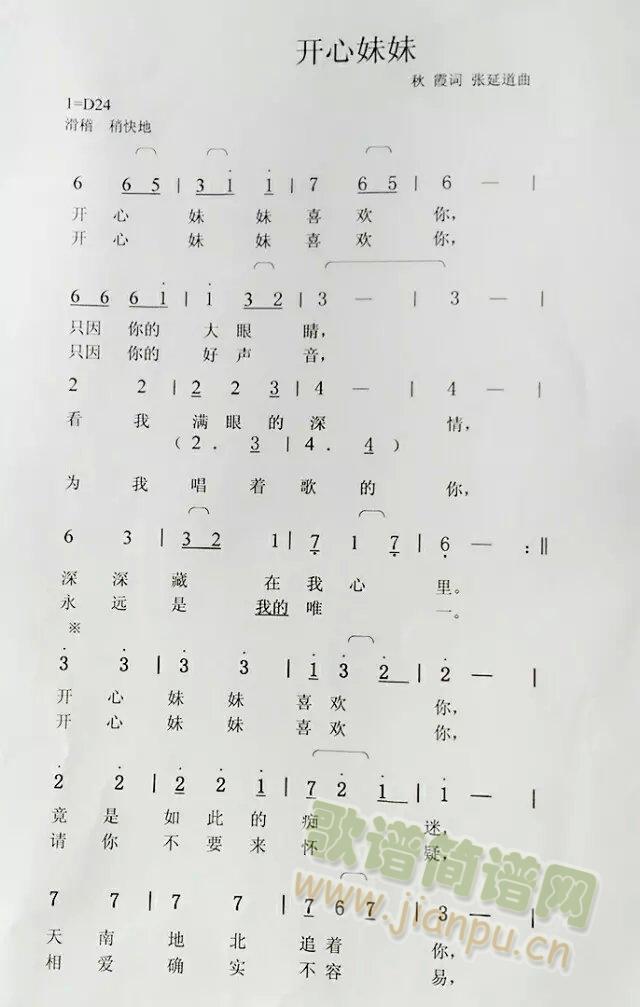 开心妹妹
秋 霞词 张延道曲
1=D24
滑稽 稍快地
6 6 5 | 3 1 1 | 7 6 5 | 6 — |
开 心 妹 妹 喜 欢 你,
开 心 妹 妹 喜 欢 你,
6 6 6 1 | 1 3 2 | 3 — | 3 — |
只因 你的 大 眼 睛,
只因 你的 好 声 音,
2 2 | 2 2 3 | 4 — | 4 — |
看 我 满 眼 的 深 情,
( 2 . 3 | 4 . 4 )
为 我 唱 着 歌 的 你,
6 3 | 3 2 1 | 7 1 7 | 6 — :‖
深 深 藏 在 我 心 里。
永 远 是 我的 唯 一。
※
3 3 | 3 3 | 1 3 2 | 2 — |
开 心 妹 妹 喜 欢 你,
开 心 妹 妹 喜 欢 你,
2 2 | 2 2 1 | 7 2 1 | 1 — |
竟 是 如 此 的 痴 迷,
请 你 不 要 来 怀 疑,
7 7 | 7 7 | 7 6 7 |
天 南 地 北 追 着 你,
相 爱 确 实 不 容 易,
歌谱简谱网
www.jianpu.cn